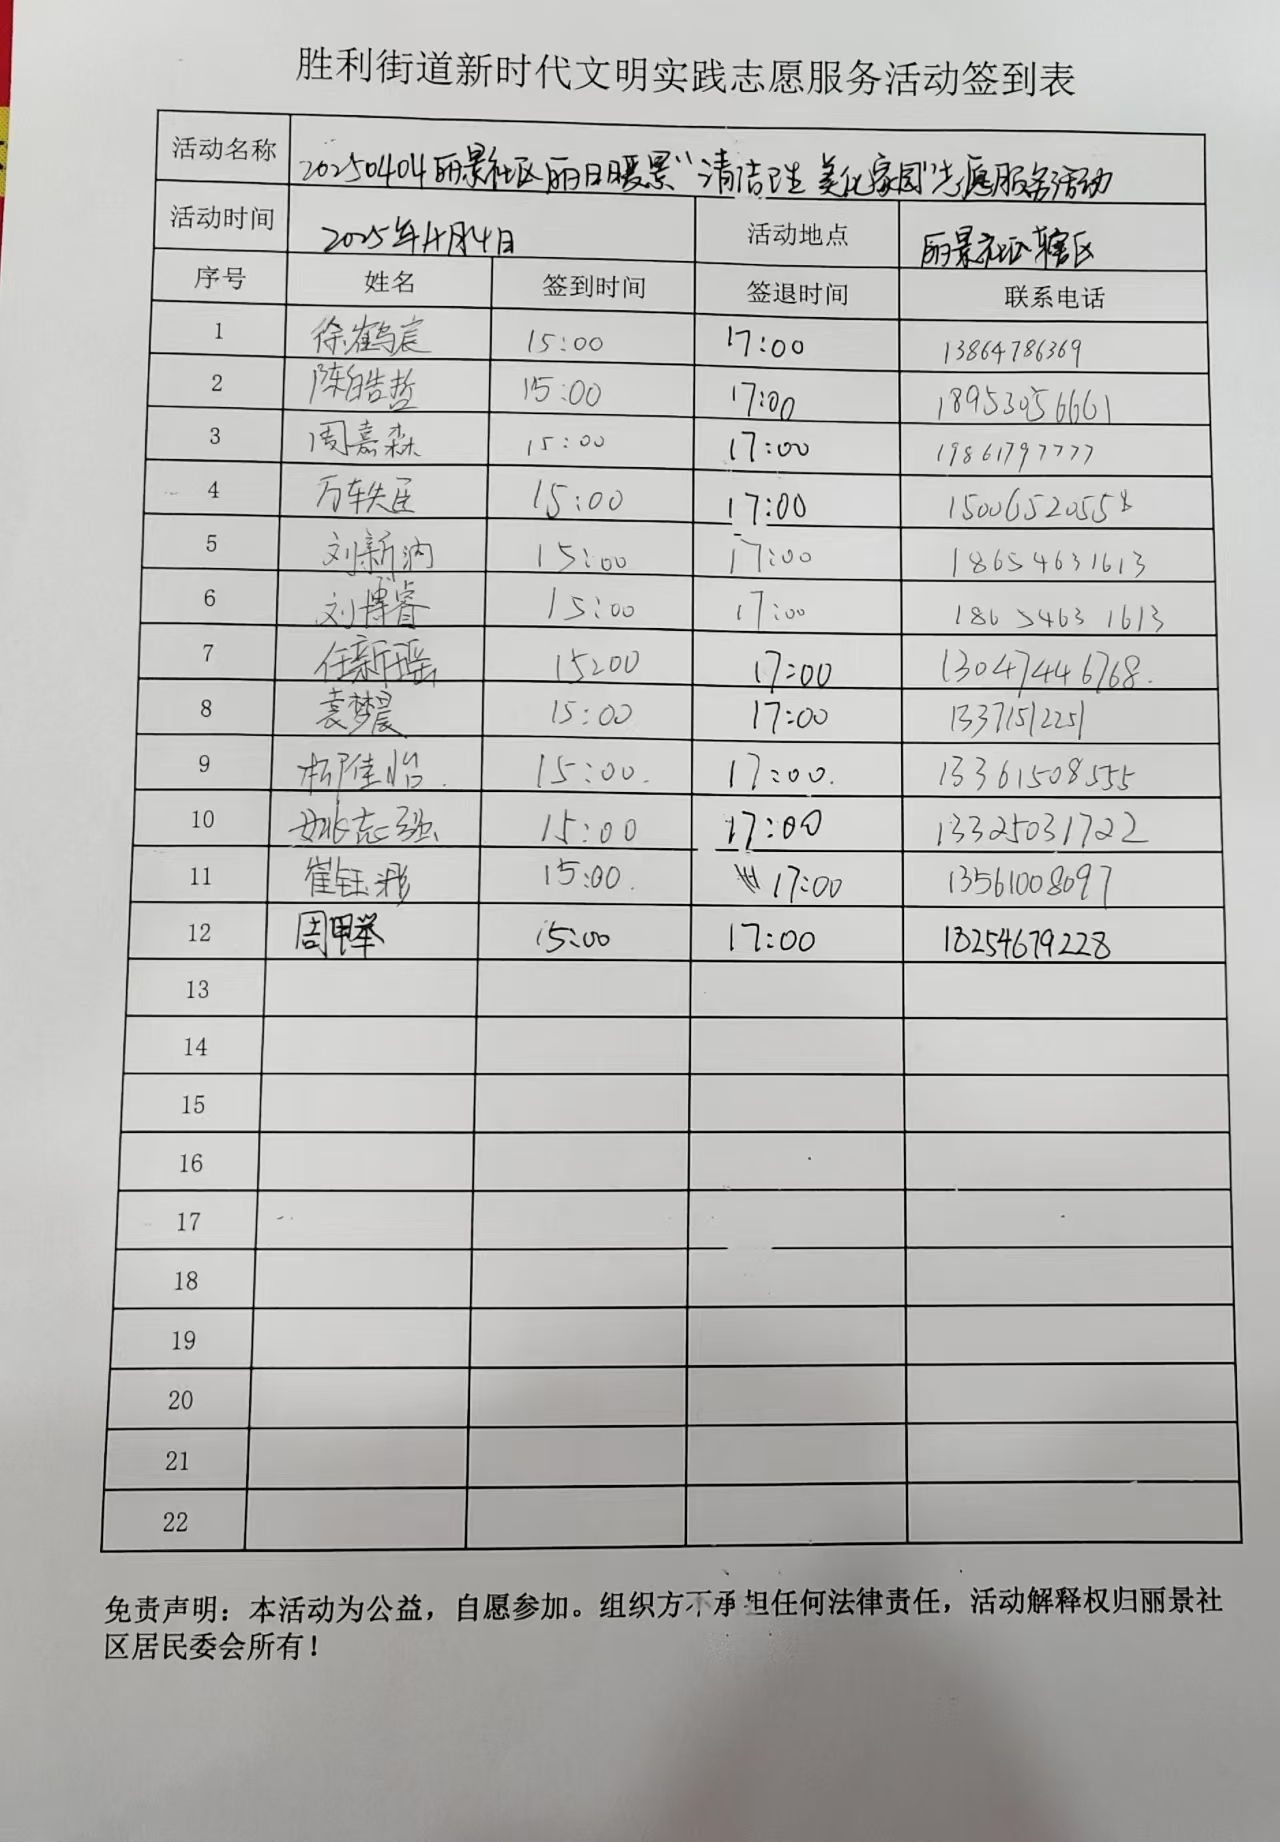 胜利街道新时代文明实践志愿服务活动签到表
活动名称 20250404丽景社区丽日暖景“清洁卫生 美化家园”志愿服务活动
活动时间 2025年4月4日 活动地点 丽景社区辖区
序号 姓名 签到时间 签退时间 联系电话
1 徐鹤宸 15:00 17:00 13864786369
2 陈皓哲 15:00 17:00 18953056661
3 周嘉森 15:00 17:00 19861797777
4 万轶臣 15:00 17:00 15006520558
5 刘新汭 15:00 17:00 18654631613
6 刘博睿 15:00 17:00 18654631613
7 任新瑶 15:00 17:00 13047446768.
8 袁梦晨 15:00 17:00 13371512251
9 佳怡 15:00. 17:00. 13361508555
10 姚志强 15:00 17:00 13325031722
11 崔钰彤 15:00. 17:00 13561008097
12 周甲举 15:00 17:00 18254679228
13
14
15
16
17
18
19
20
21
22
免责声明：本活动为公益，自愿参加。组织方不承担任何法律责任，活动解释权归丽景社
区居民委会所有！